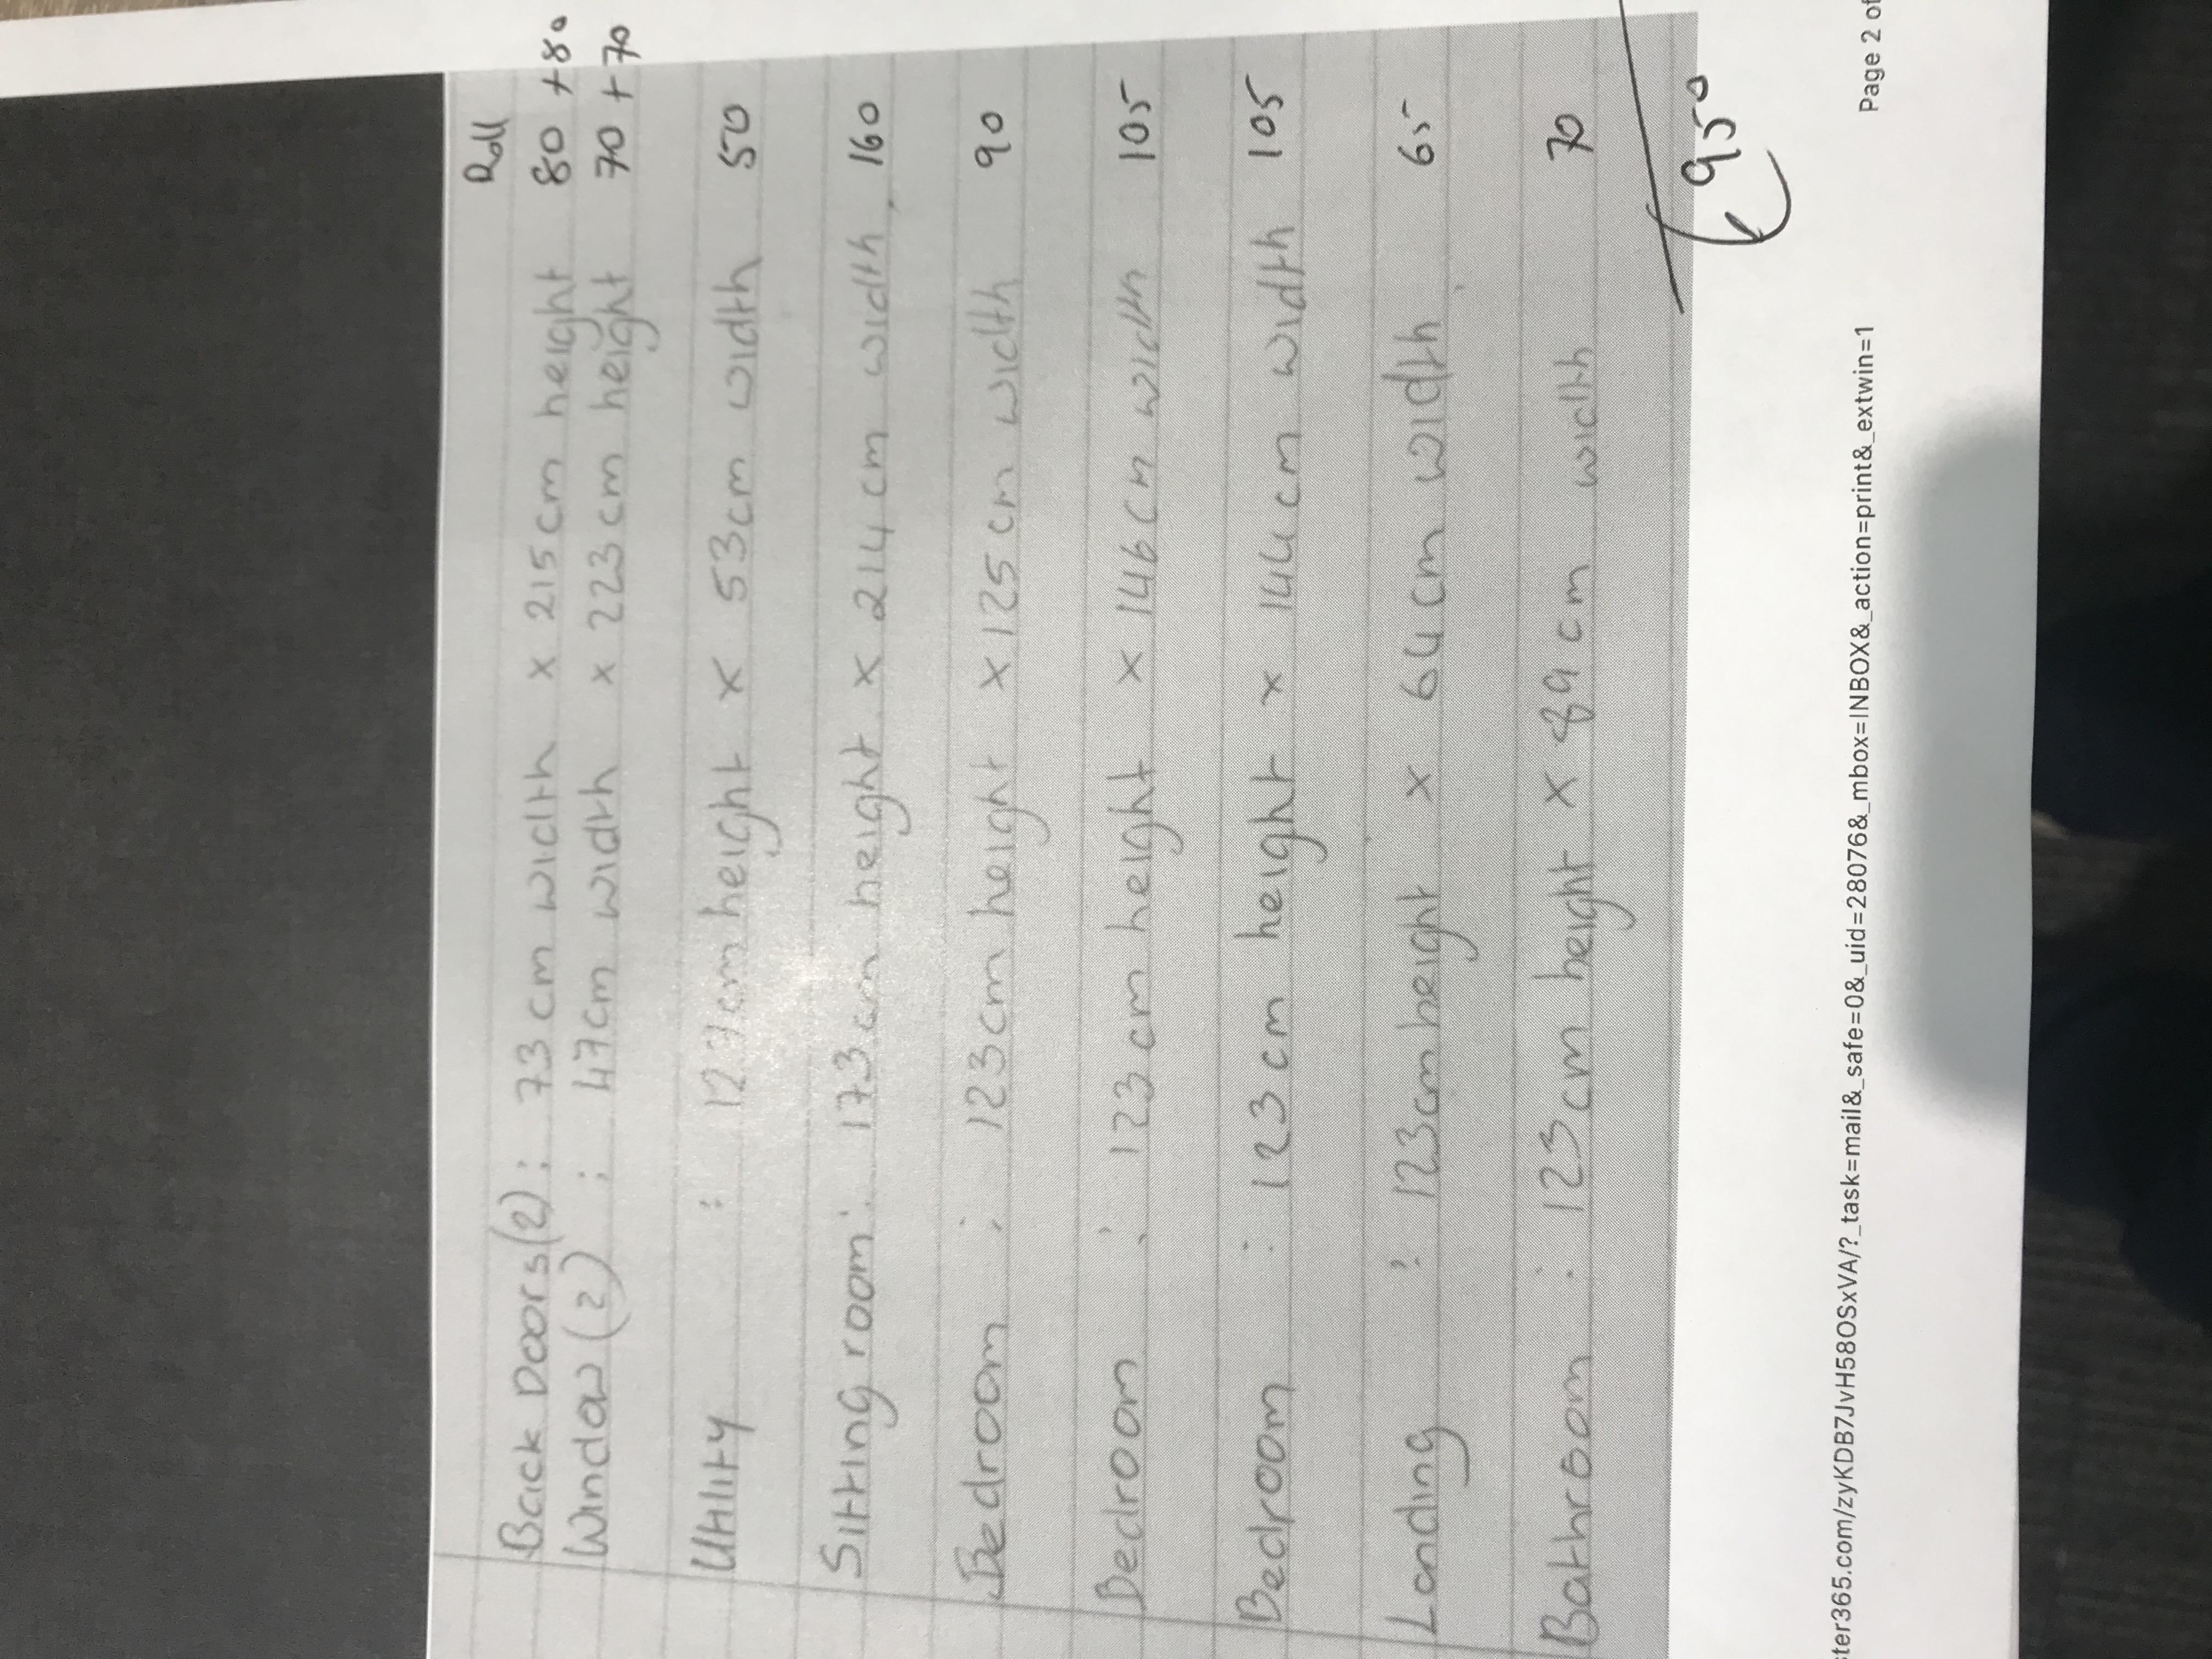 Roll
Back Doors(2): 73cm width x 215cm height 80 +80
Window (2) : 47cm width x 223cm height 70 +70
Utility : cm height x 53cm width 50
Sitting room: 173cm height x 214cm width 160
Bedroom : 123cm height x 125cm width 90
Bedroom : 123cm height x 146cm width 105
Bedroom : 123cm height x 144cm width 105
Landing : 123cm height x 64cm width 65
Bathroom : 123cm height x 89cm width 70
950
ster365.com/zyKDB7JvH58OSxVA/?_task=mail&_safe=0&_uid=28076&_mbox=INBOX&_action=print&_extwin=1 Page 2 of